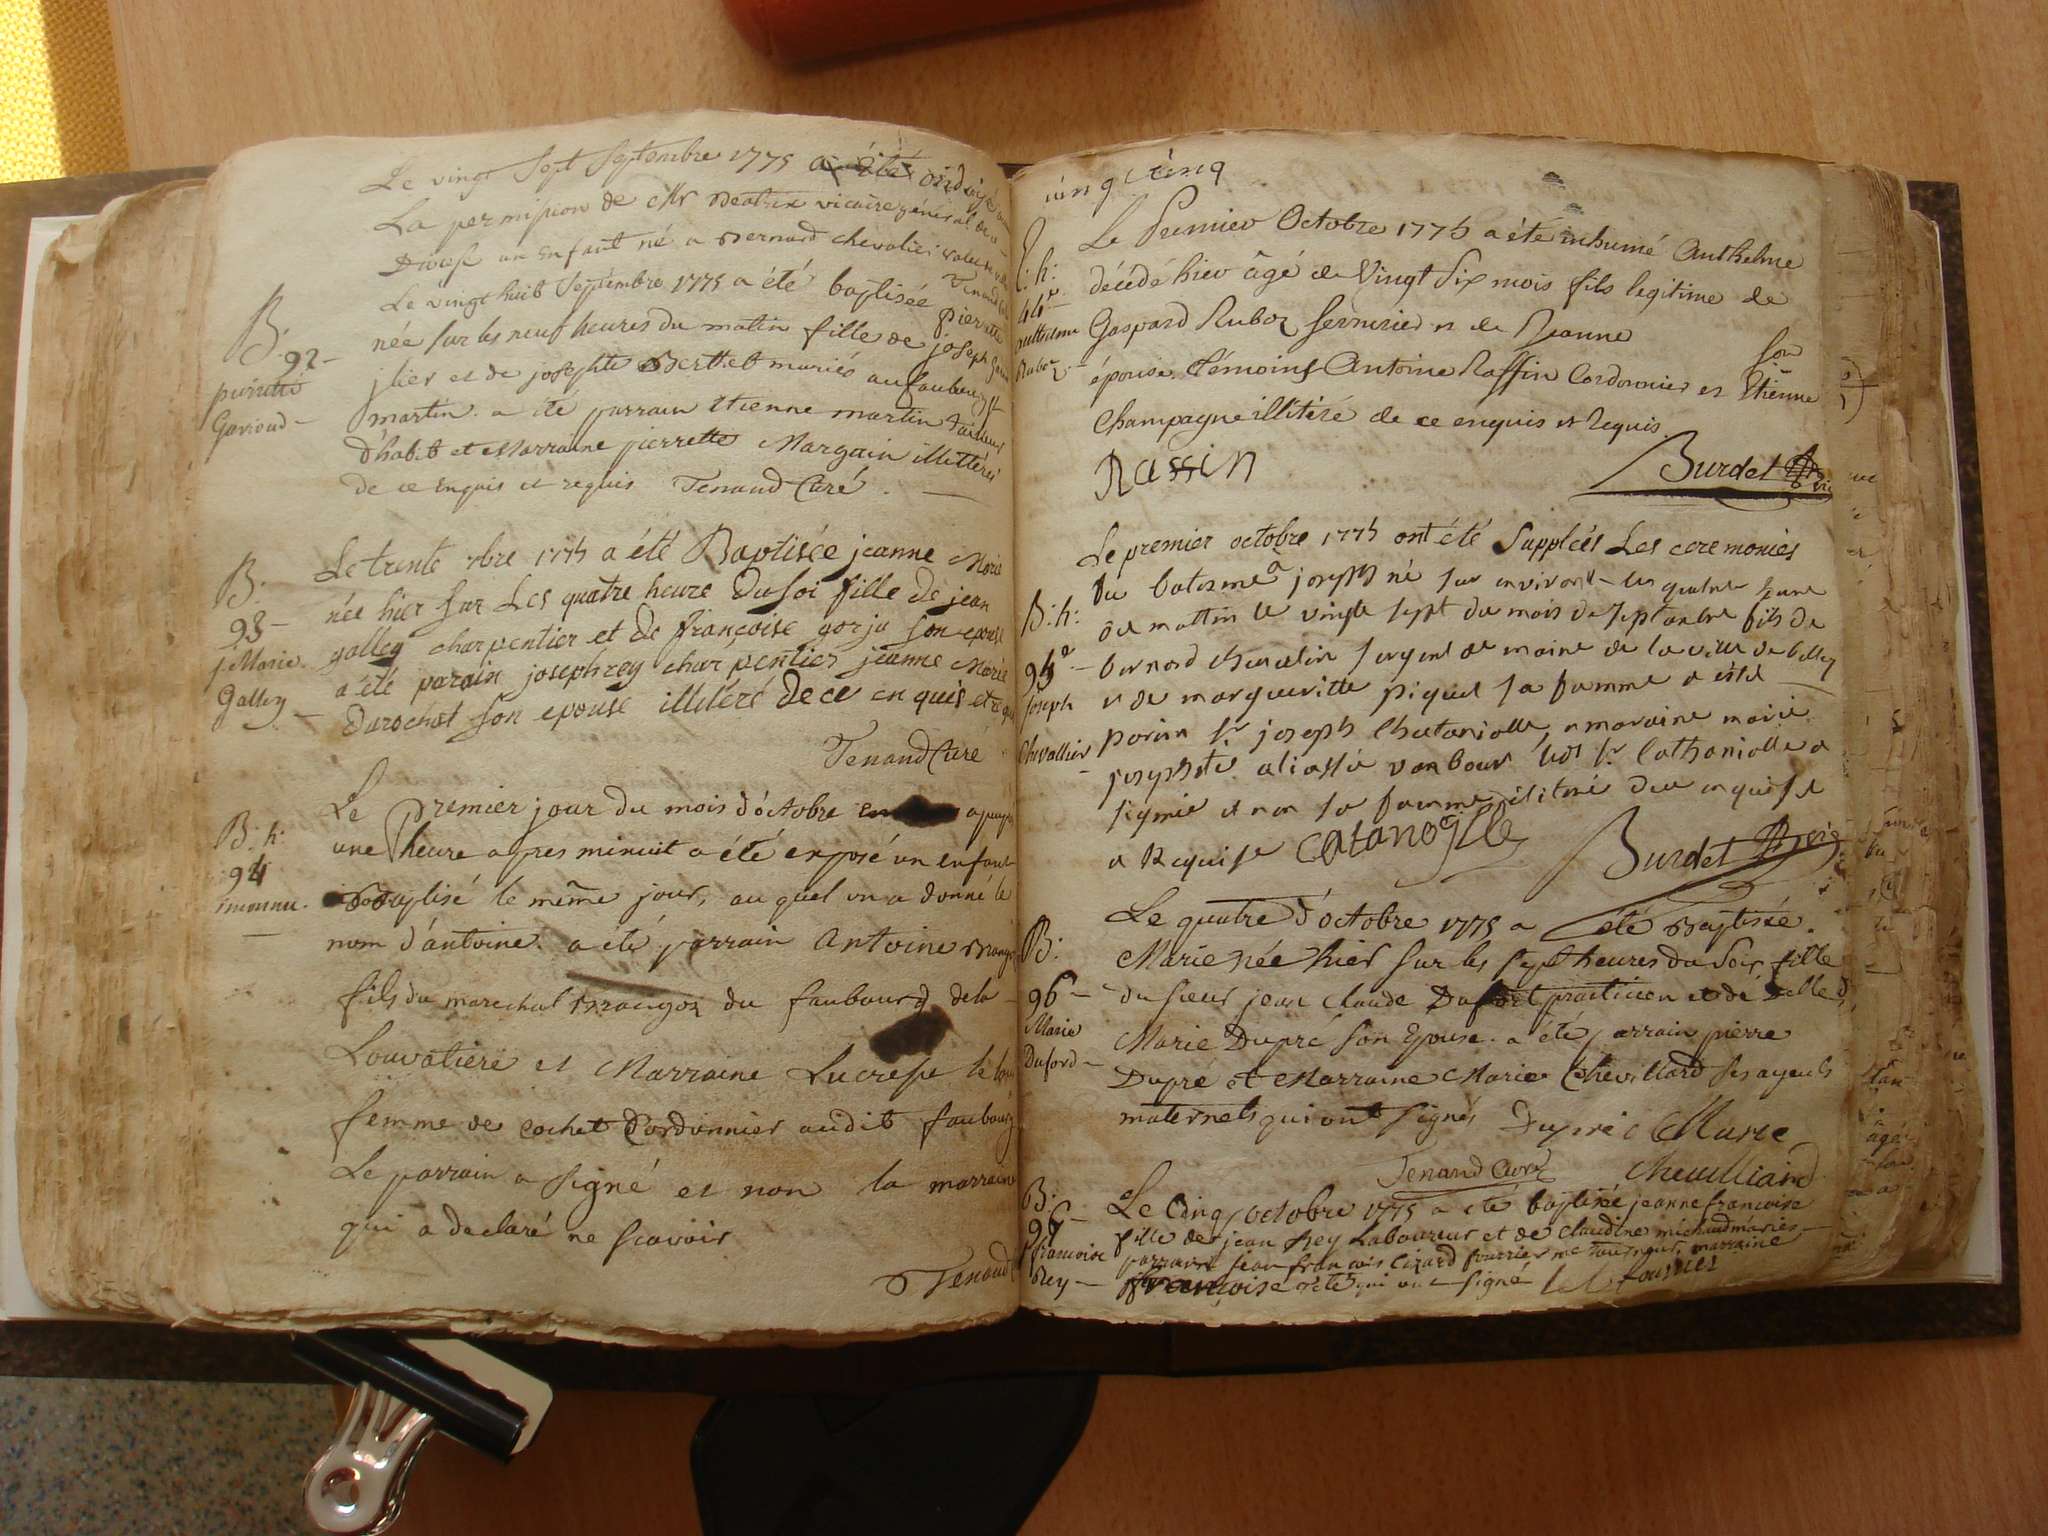 Le vingt Sept Septembre 1775 a été ondoyé
La permission de Mr vicaire général
Diocese un Enfant né a Bernard chevalier
Tenaud
Le vingt huit Septembre 1775 a été baptisée pierrette
née sur les neuf heures du matin fille de joseph
et de josephte Berthet mariés au faubourg St
martin. a été parrain Etienne martin Tailleur
d'habit et Marraine pierrette Margain illittérés
de ce Enquis et requis Tenaud Curé.
B.
92
pierrette
Gavioud
Le trente 7bre 1775 a été Baptisée jeanne Marie
née hier sur Les quatre heure du soi fille de jean
galley charpentier et de françoise gorju son epouse
a été parain joseph rey charpentier jeanne Marie
Darochat son epouse illiteré de ce en quis et
Tenaud Curé
B.
93
j. Marie
Galley
Le premier jour du mois d'octobre
une heure apres minuit a été exposé un enfant
Baptisé le même jour, au quel on a donné le
nom d'antoine. a été parrain Antoine
fils du marechal du faubourg de la
Louvatiere et Marraine Lucresse
femme de cochet Cordonnier audit faubourg
Le parrain a signé et non la marraine
qui a declaré ne scavoir
Tenaud
B. h:
94
inconnu.
cinq
Le Premier Octobre 1775 a été inhumé Anthelme
décédé hier âgé de Vingt Six mois fils legitime de
Gaspard Ruboz serrurier et de Jeanne
son
épouse. Témoins Antoine Raffin Cordonnier et Etienne
Champagne illitéré de ce enquis et Requis.
Rassin Burdet
h:
44
Anthelme
Ruboz
Le premier octobre 1775 ont été Supplées Les ceremonies
Du batesme a joseph né sur anviront les quatre heure
du mattin le vingt sept du mois de septambre fils de
bernard chevalier sergent de maine de la ville de belley
et de margueritte piquet sa famme a été
parain sr joseph Chatanialle, maraine marie
josephte sr Cathanialle a
signié et non sa famme ilitéré due anquise
a Requise catanoglle Burdet
B. h:
95
Joseph
Chevallier
Le quatre d'octobre 1775 a été Baptisée.
Marie née hier sur les sept heures du Soir fille
du sieur jean claude Dufort praticien et de Delle
Marie Dupré son Epouse. a été parrain pierre
Dupré et Marraine Marie Chevillard ses ayeuls
maternels qui ont signés Dupré Marie
Tenaud Curé Cheuilliard
B.
96
Marie
Duford
Le Cinq octobre 1775 a été baptisée jeanne francoise
fille de jean Rey Laboureur et de Claudine michaud mariés
parrain jean francois Cirard marraine
françoise qui ont signé
B.
97
francoise
Rey